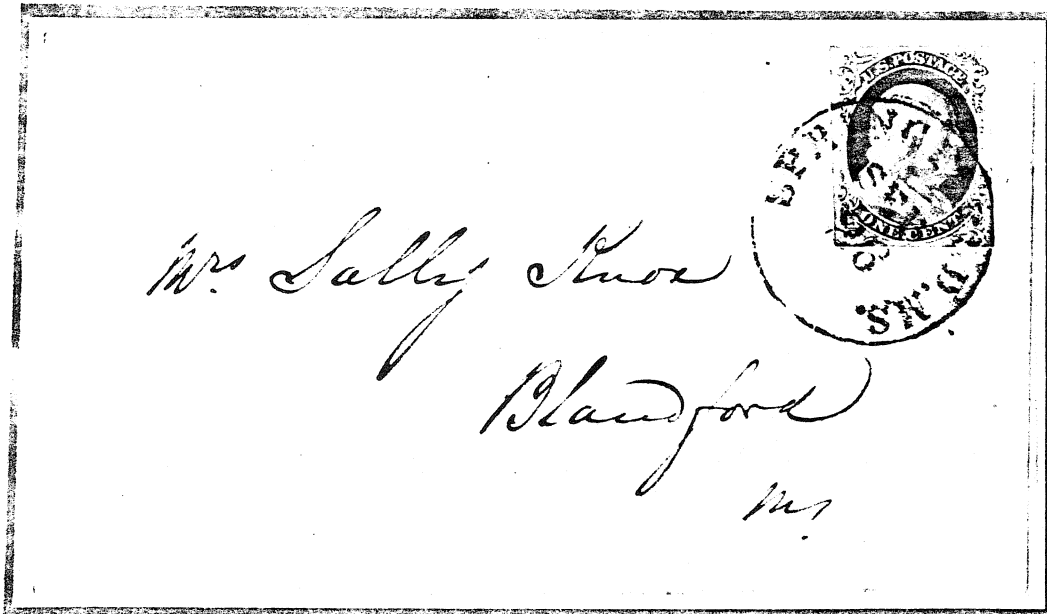 U.S. POSTAGE.
ONE CENT.
D. MS.
Mrs. Sally Knox
Blandford
Ms